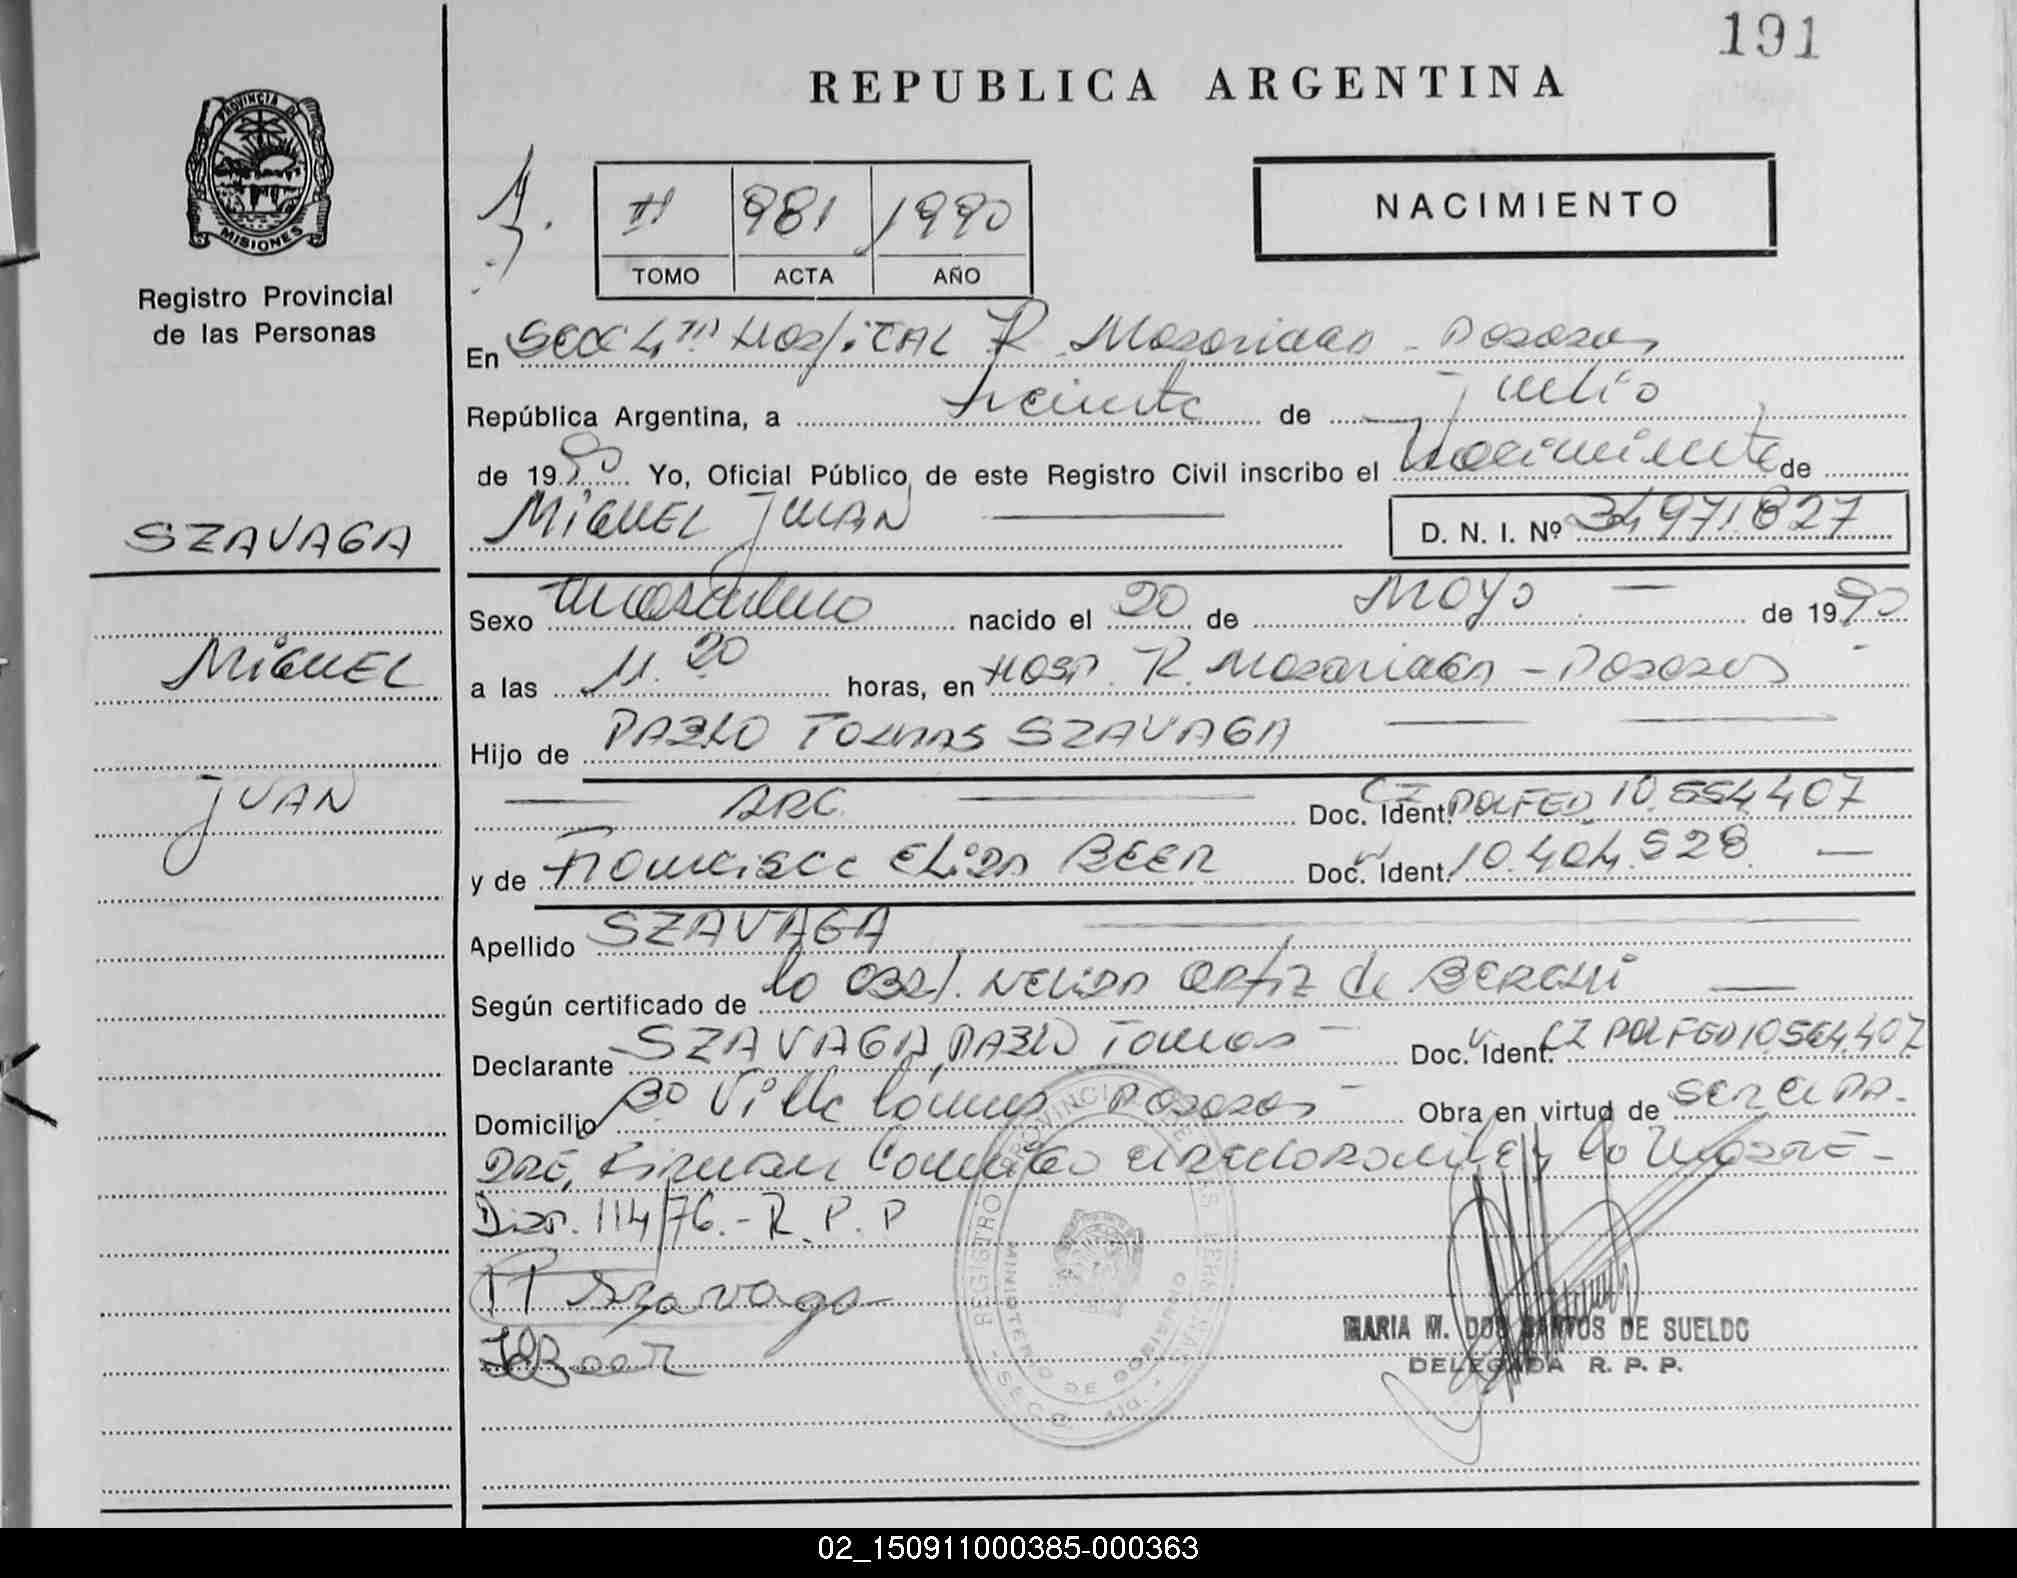 191
REPUBLICA ARGENTINA
PROVINCIA DE
MISIONES
Registro Provincial
de las Personas
II 981 1990
TOMO ACTA AÑO
NACIMIENTO
En Secc 4ta Hospital R. Madariaga - Posadas
República Argentina, a treinta de julio
de 1990 Yo, Oficial Público de este Registro Civil inscribo el Nacimiento de
SZAVAGA
MIGUEL JUAN
D. N. I. Nº 34971827
Sexo Masculino nacido el 20 de Mayo de 1990
MIGUEL
a las 11.20 horas, en Hosp. R. Madariaga - Posadas
Hijo de PABLO TOMAS SZAVAGA
JUAN
ARG. Doc. Ident. CI POL FED 10.554.407
y de Francisca ELIDA BEER Doc. Ident. 10.404.528
Apellido SZAVAGA
Según certificado de la Obst. NELIDA ORTIZ de
Declarante SZAVAGA, PABLO Tomas Doc. Ident. CI POL FED 10.564.407
Domicilio Bº Villa Posadas Obra en virtud de SER EL PA-
DRE, Firman y la MADRE -
Disp. 114/76.- R. P. P
PT Szavaga
Beer
REGISTRO PROVINCIAL DE LAS PERSONAS
MINISTERIO DE GOBIERNO
MARIA M. DOS SANTOS DE SUELDO
DELEGADA R. P. P.
02_150911000385-000363